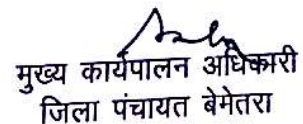 मुख्य कार्यपालन अधिकारी
जिला पंचायत बेमेतरा